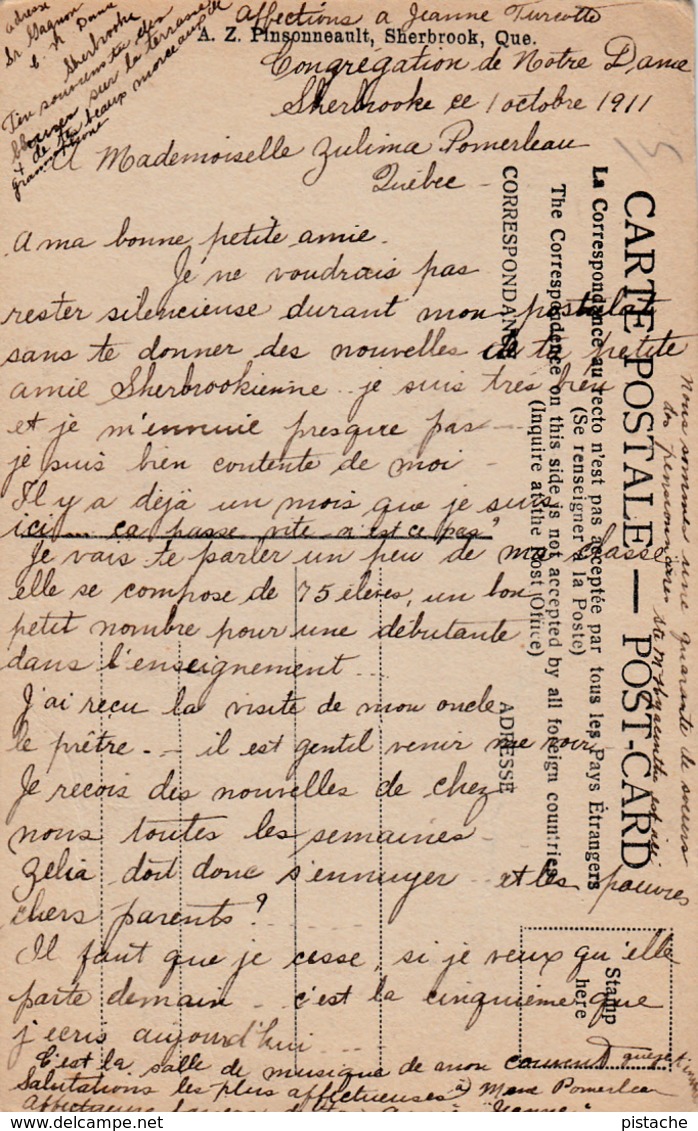 Affections à Jeanne Turcotte
A. Z. Pinsonneault, Sherbrook, Que.
Congrégation de Notre Dame
Sherbrooke ce 1 octobre 1911
A Mademoiselle Zulima Pomerleau
Québec -
A ma bonne petite amie.
Je ne voudrais pas
rester silencieuse durant mon postulat
sans te donner des nouvelles de ta petite
amie Sherbrookienne.. je suis très bien
et je m'ennuie presque pas -
je suis bien contente de moi -
Il y a déjà un mois que je suis
ici.... ça passe vite n'est ce pas?
Je vais te parler un peu de ma classe
elle se compose de 75 élèves, un bon
petit nombre pour une débutante
dans l'enseignement...
J'ai reçu la visite de mon oncle
le prêtre - - il est gentil venir me voir
Je reçois des nouvelles de chez
nous toutes les semaines -
Zélia doit donc s'ennuyer et les pauvres
chers parents?
Il faut que je cesse, si je veux qu'elle
parte demain - c'est la cinquième que
j'écris aujourd'hui
C'est la salle de musique de mon couvent
Salutations les plus affectueuses à Mme Pomerleau
adresse
Sr Gagnon
C. N. Dame
Sherbrooke
T'en souviens tu des
sur la terrasse
et de tes beaux morceaux de
gramophone
CARTE POSTALE — POST-CARD
La Correspondance au recto n'est pas acceptée par tous les Pays Étrangers
(Se renseigner à la Poste)
The Correspondence on this side is not accepted by all foreign countries
(Inquire at the Post Office)
CORRESPONDANCE
ADRESSE
Stamp
here
Nous sommes une quarante de sœurs
des pensionnaires Ste M Hyacinthe est ici
15
pistache